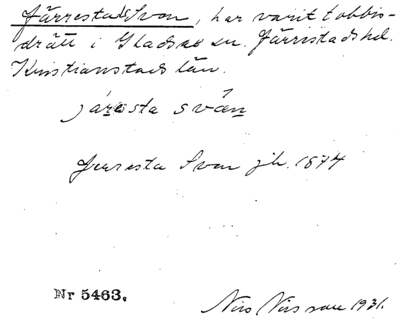 Järrestad Svan, har varit tobbis-
drätt i Gladsax sn. Järrestads hd.
Kristianstads län.
järesta svän
Jearesta Svan jb. 1874
Nr 5463.
Nils Nilsson 1931.